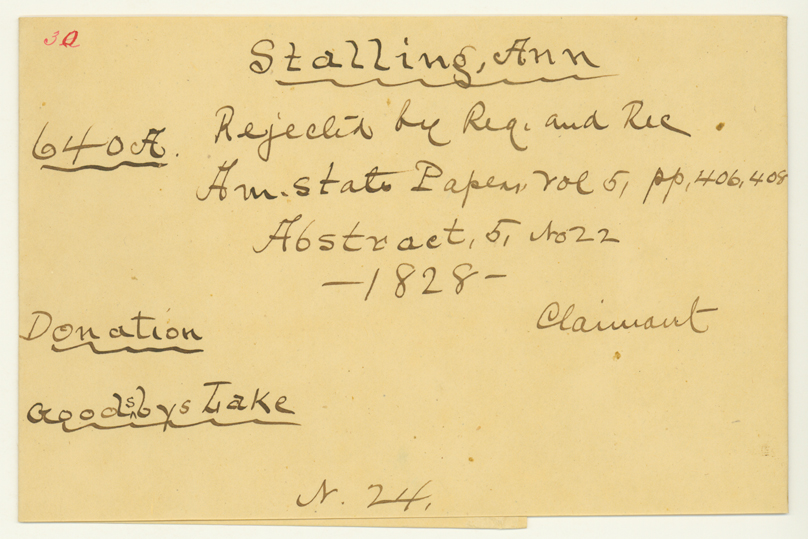 30
Stalling, Ann
640 A. Rejected by Reg. and Rec.
Am. State Papers, Vol 5, pp, 406, 408
Abstract, 5, No 22
—1828—
Claimant
Donation
Goodsbys Lake
N. 24.